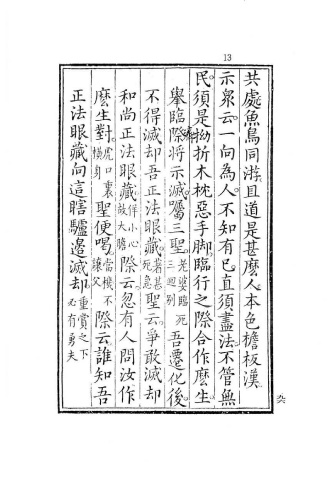 13
共處魚鳥同游且道是甚麼人本色檐板漢
示眾云一向為人不知有已直須盡法不管無
民須是拗折木枕惡手脚臨行之際合作麼生
舉臨際將示滅囑三聖老婆臨死三迴別吾遷化後
不得滅却吾正法眼藏著甚死急聖云爭敢滅却
和尚正法眼藏佯小心敢大膽際云忽有人問汝作
麼生對虎口裏橫身聖便喝當機不讓父際云誰知吾
正法眼藏向這瞎驢邊滅却重賞之下必有勇夫